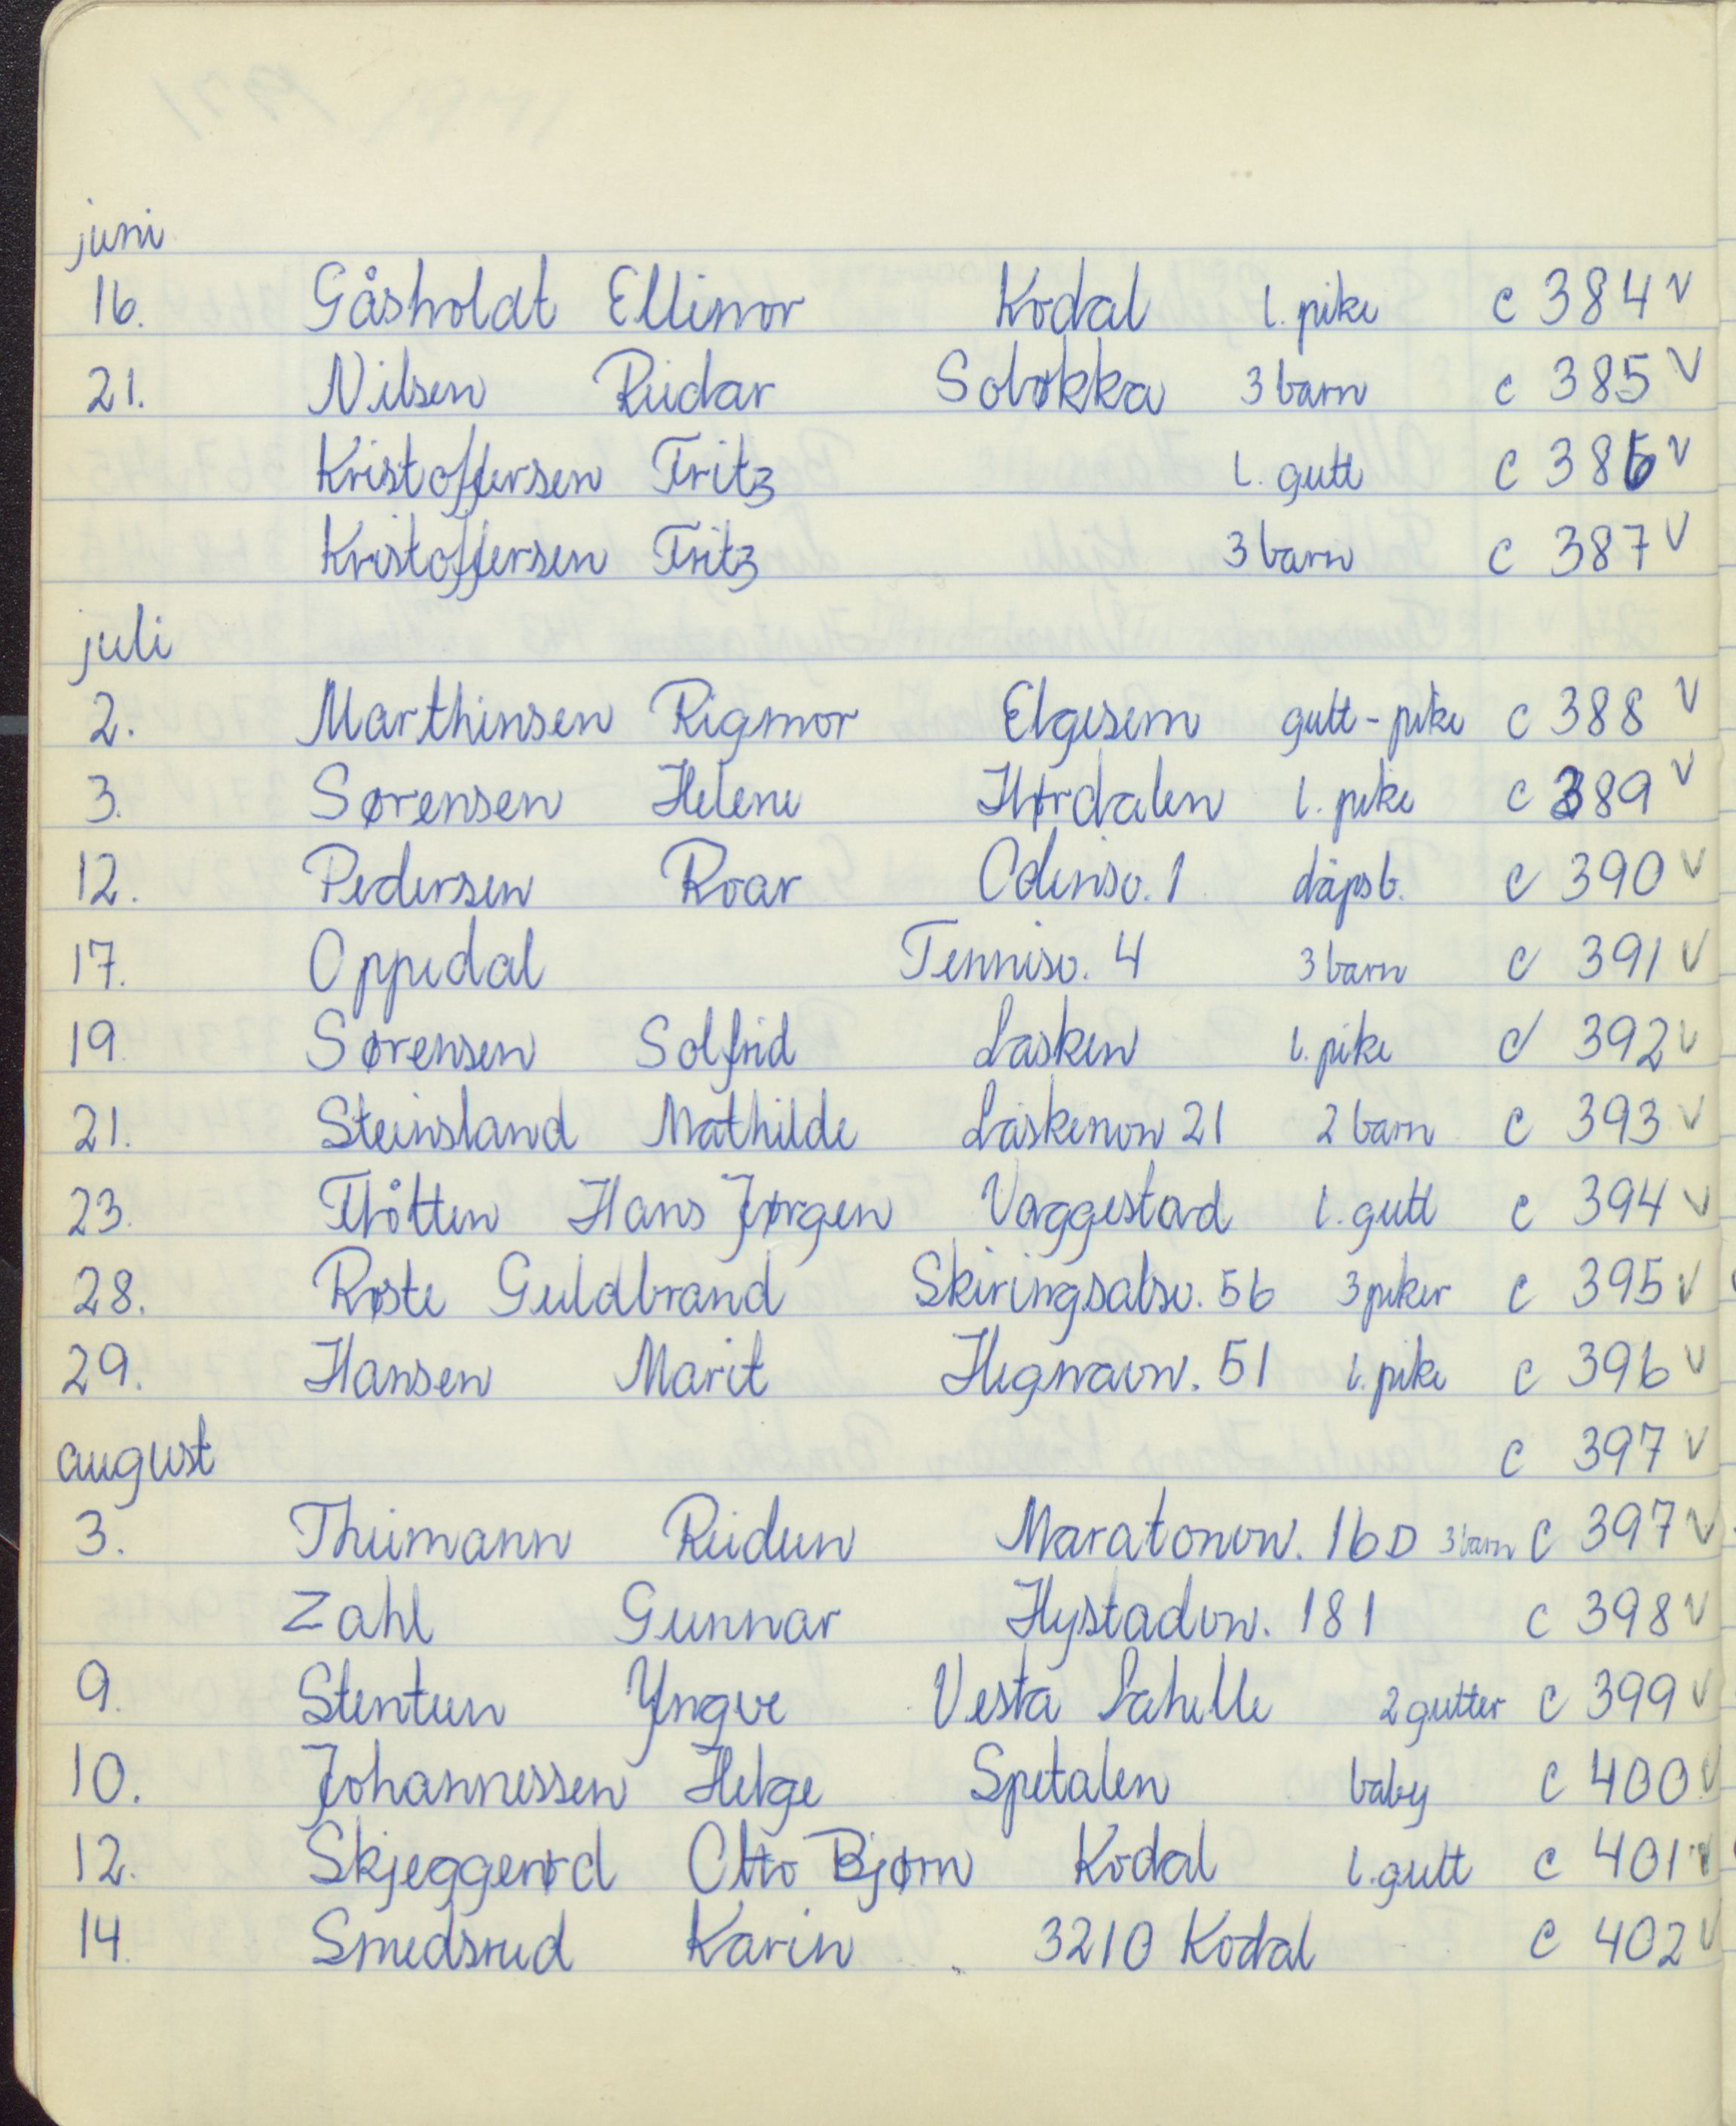 juni
16. Gåsholdt Ellinor Kodal 1. pike c 384 v
21. Nilsen Reidar Soløkka 3 barn c 385 v
Kristoffersen Fritz 1. gutt c 386 v
Kristoffersen Fritz 3 barn c 387 v
juli
2. Marthinsen Rigmor Elgesem gutt - pike c 388 v
3. Sørensen Helene Hørdalen 1. pike c 389 v
12. Pedersen Roar Odinsv. 1 dåpsb. c 390 v
17. Oppedal Tennisv. 4 3 barn c 391 v
19. Sørensen Solfrid Lasken 1. pike c 392 v
21. Steinsland Mathilde Laskenvn 21 2 barn c 393 v
23. Thötten Hans Jørgen Vaggestad 1. gutt c 394 v
28. Røste Guldbrand Skiringsalsv. 56 3 piker c 395 v
29. Hansen Marit Hegnavn. 51 1. pike c 396 v
august c 397 v
3. Theimann Reidun Maratonvn. 16 D 3 barn c 397 v
Zahl Gunnar Hystadvn. 181 c 398 v
9. Stentun Yngve Vesta Lahelle 2 gutter c 399 v
10. Johannessen Helge Spetalen baby c 400 v
12. Skjeggerød Otto Bjørn Kodal 1. gutt c 401 v
14. Smedsrud Karin 3210 Kodal c 402 v